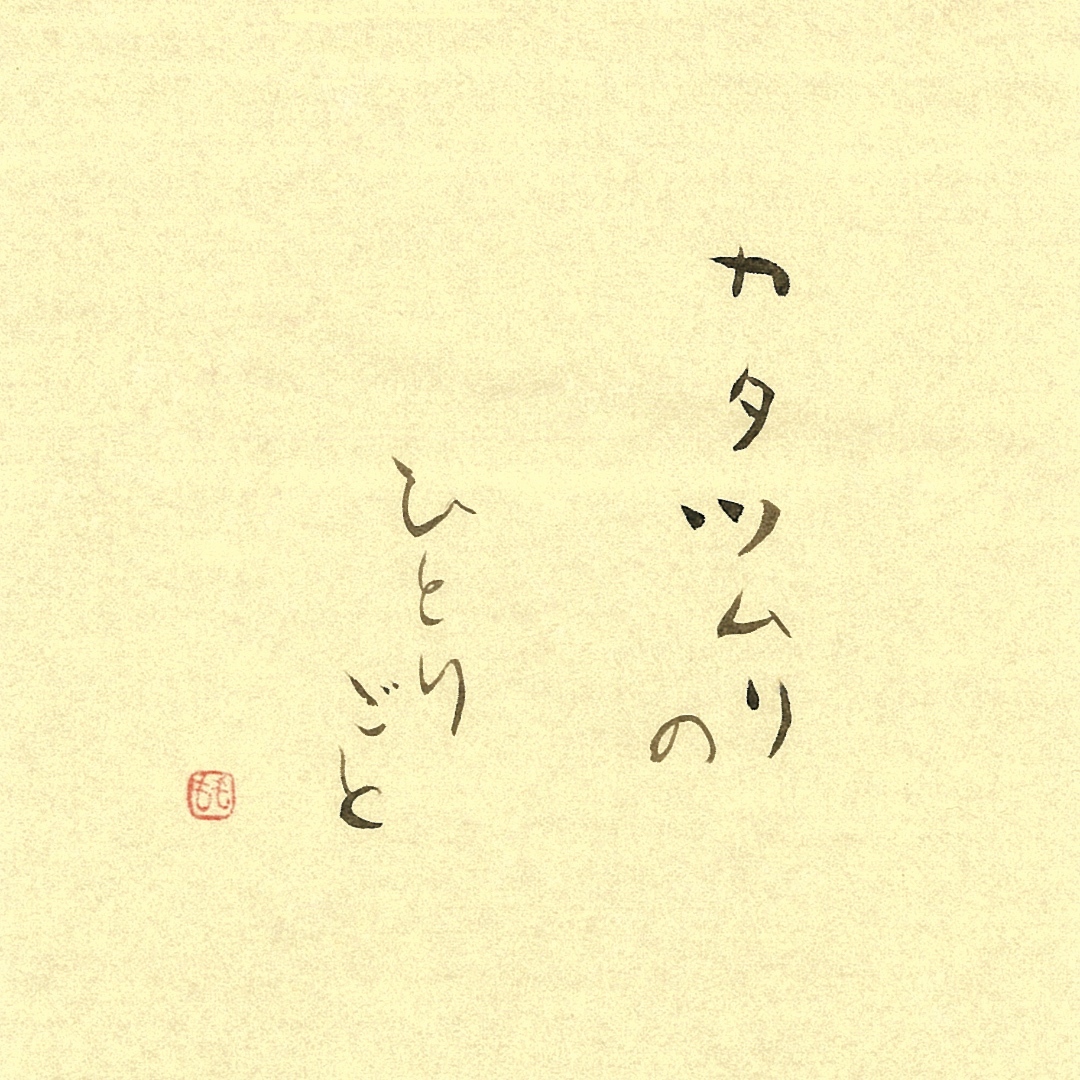 カタツムリ
の
ひとり
ごと
もも